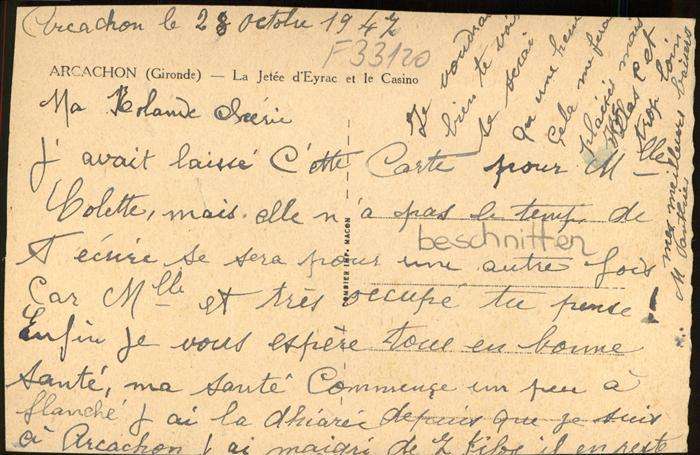 Arcachon le 28 octobre 1947
F33120
ARCACHON (Gironde) — La Jetée d'Eyrac et le Casino
Ma Rolande chérie
J'avait laissé C'ette Carte pour Mlle
Colette, mais elle n'a pas le temps de
t'écrire se sera pour une autre fois
Car Mlle et très occupé tu pense !
Enfin je vous espère tous en bonne
santé, ma santé Commence un peu à
flanché j'ai la dhiarée depuis que je suis
à Arcachon j'ai maigri de 7 kilos il en reste
Je voudrai
bien te voi
te serai
qu une heu
Cela me fera
plaisir mais
hélas c'et
trop loin
mes meilleurs baisers
M
COMBIER IMP. MACON
beschnitten